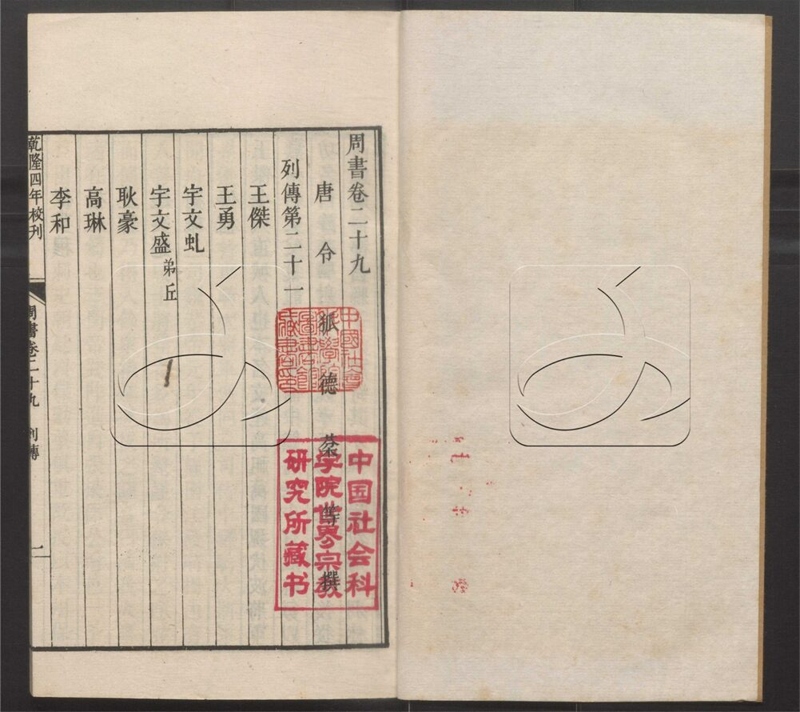 周書卷二十九
唐令狐德棻等撰
列傳第二十一
王傑
王勇
宇文虬
宇文盛弟丘
耿豪
高琳
李和
乾隆四年校刊
周書卷二十九 列傳 一
中國社會
科學院
圖書館
藏書印
中国社会科
学院世界宗教
研究所藏书